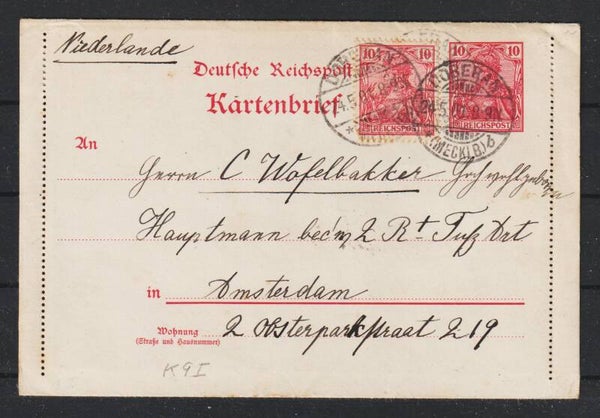 Niederlande
10 10
REICHSPOST
10 10
REICHSPOST
DOBERAN
(MECKLB)
Deutsche Reichspost
Kartenbrief
An
Herrn C Wofelbakker Hochwohlgeboren
Hauptmann 2 Rt Art
in Amsterdam
Wohnung
(Straße und Hausnummer)
2 Oosterparkstraat 219
K9I